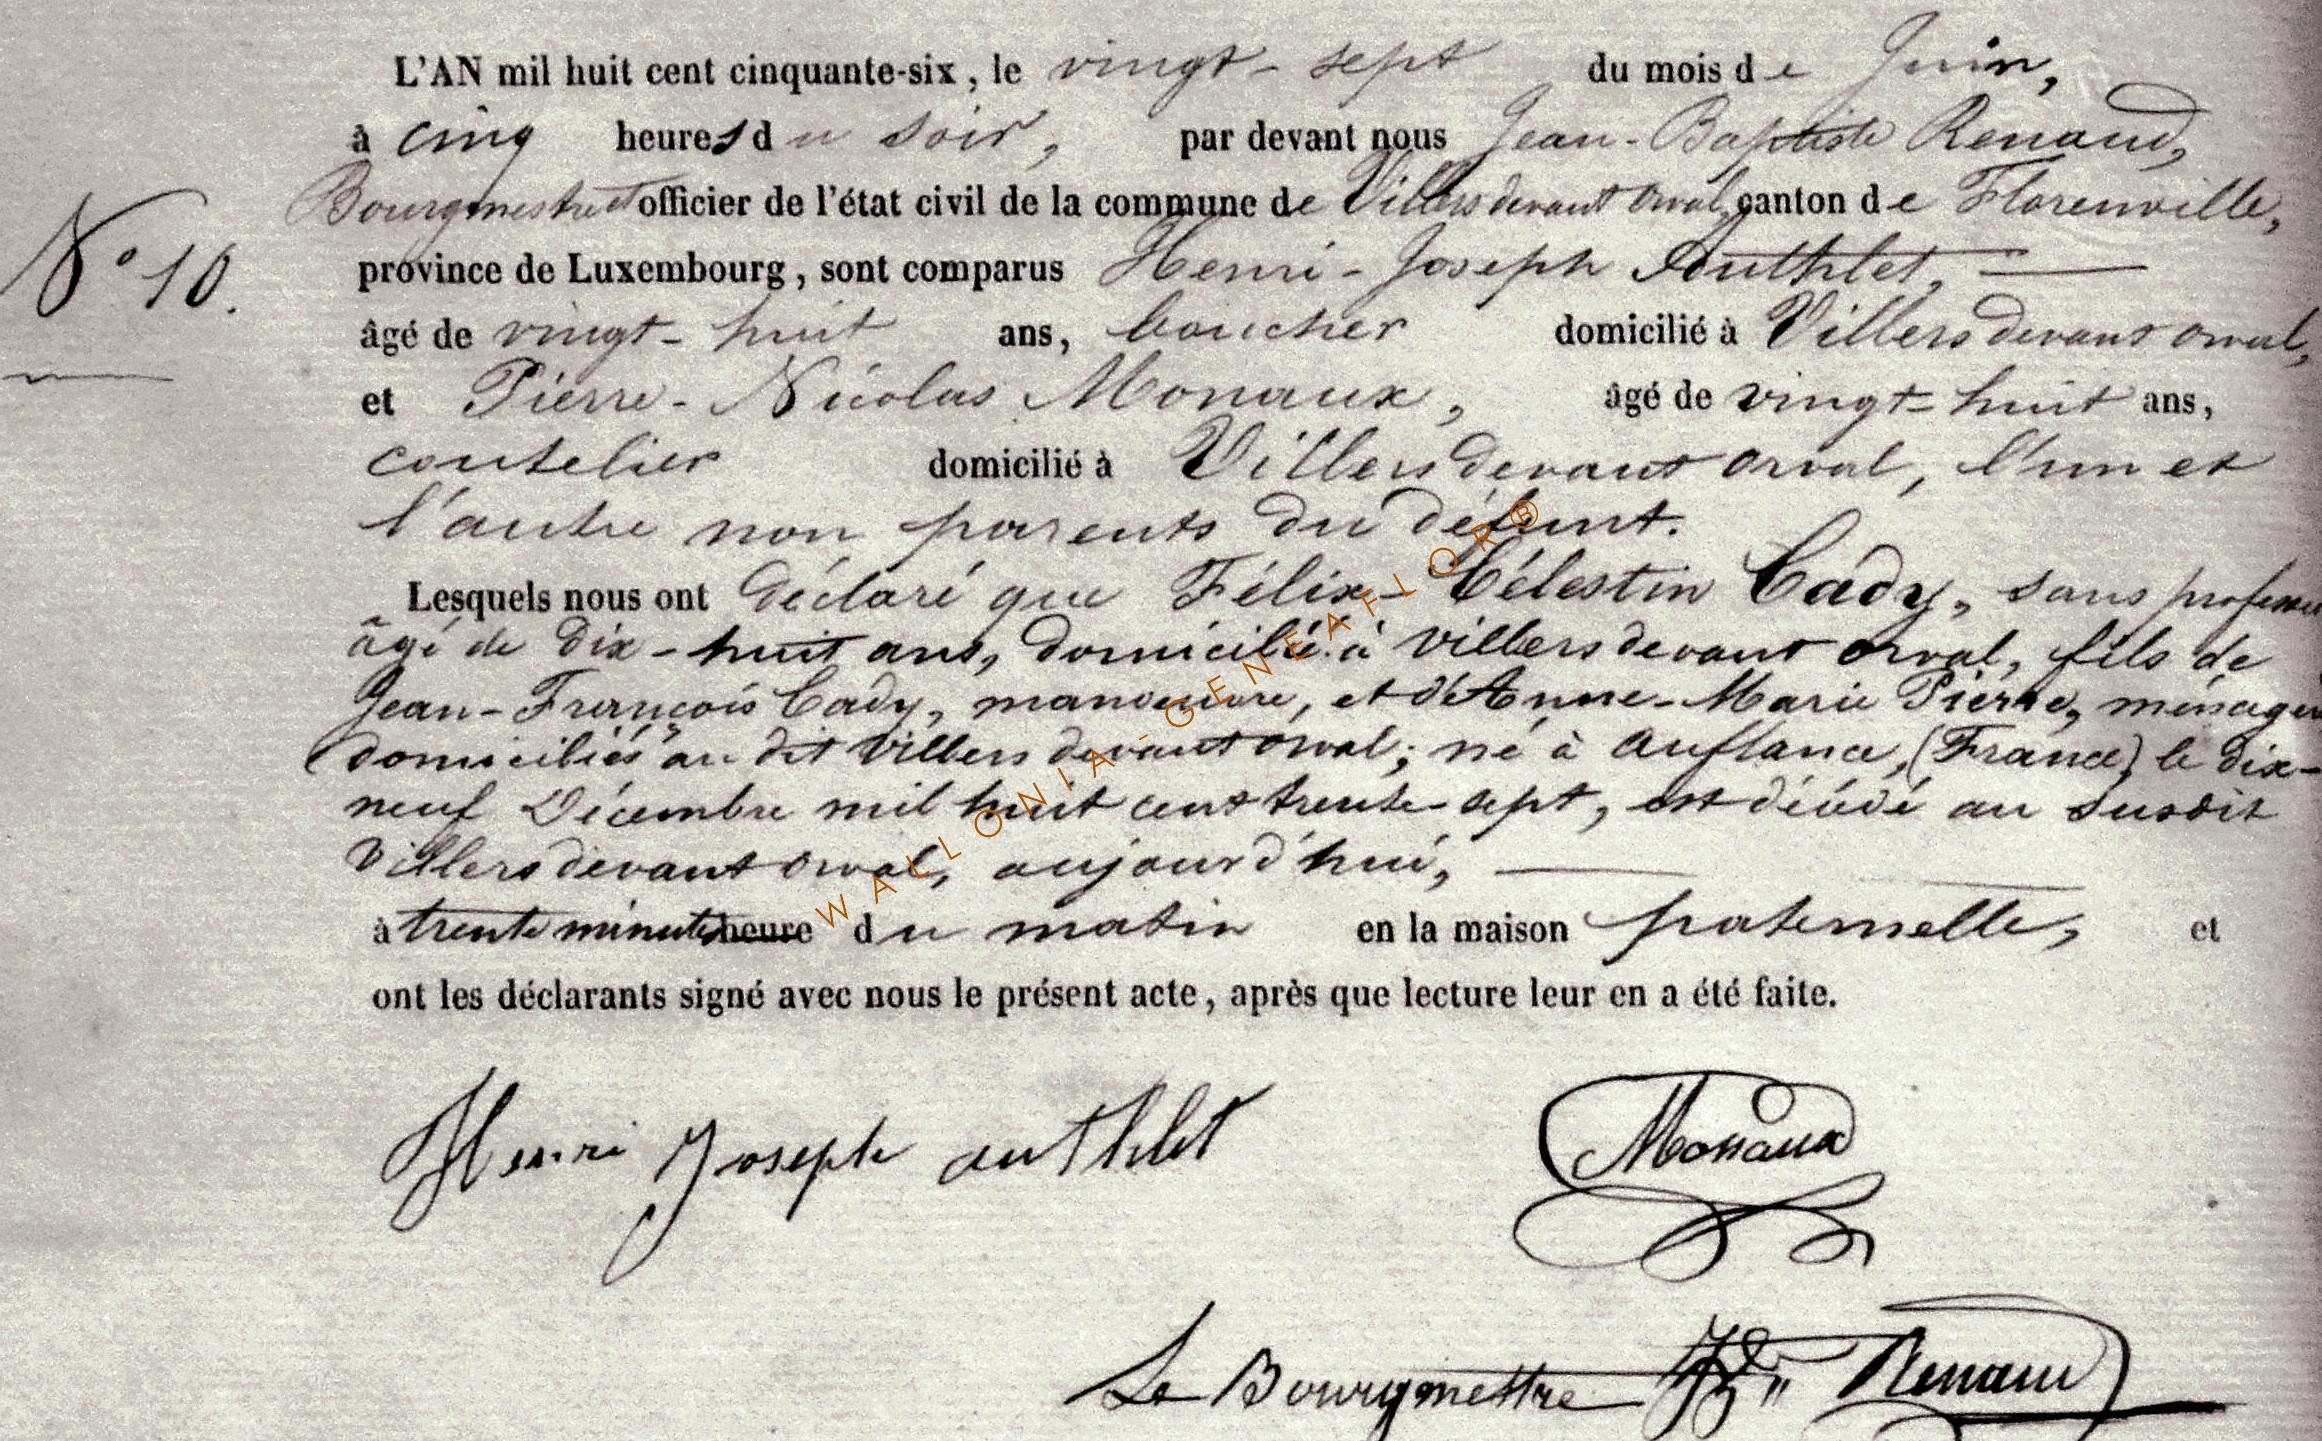 L'AN mil huit cent cinquante-six, le vingt-sept du mois de Juin,
à cinq heures du soir, par devant nous Jean-Baptiste Renaud,
Bourgmestre et officier de l'état civil de la commune de Villers devant orval, canton de Florenville,
N° 10.
province de Luxembourg, sont comparus Henri-Joseph Authlet,
âgé de vingt-huit ans, boucher domicilié à Villers devant orval,
et Pierre-Nicolas Monaux, âgé de vingt-huit ans,
coutelier domicilié à Villers devant orval, l'un et
l'autre non parents du défunt.
Lesquels nous ont déclaré que Félix-Célestin Cady, sans profession
âgé de dix-huit ans, domicilié à villers devant orval, fils de
Jean-François Cady, manoeuvre, et d'Anne-Marie Pierre, ménagère
domiciliés au dit villers devant orval; né à auflance, (France), le dix-
neuf Décembre mil huit cent trente-sept, est décédé au susdit
Villers devant orval, aujourd'hui,
à trente minutes heure du matin en la maison paternelle, et
ont les déclarants signé avec nous le présent acte, après que lecture leur en a été faite.
Henri Joseph authlet
Monaux
Le Bourgmestre JBte Renaud
WALLONIA-GENEAFLOR®